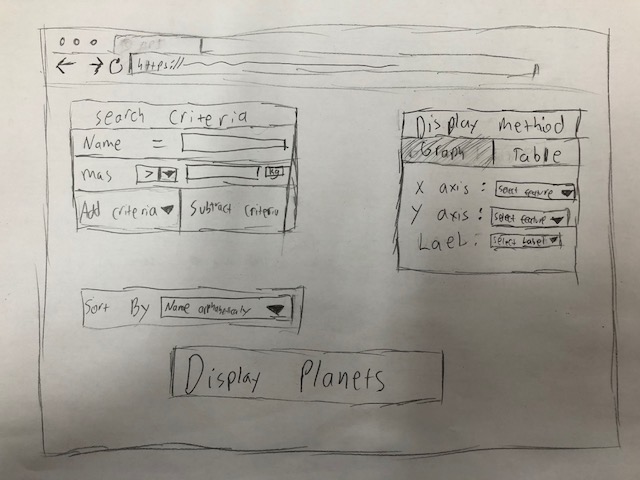 https://
Search Criteria
Name =
mas > Kg
Add criteria Subtract criteria
Display method
Graph Table
X axis: Select feature
Y axis: Select feature
Lael: Select Label
Sort By Name alphabetically
Display Planets